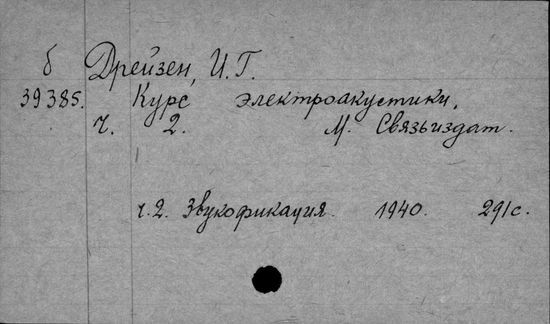 б Дрейзен, И.Г.
39385. Курс электроакустики.
ч. 2. М. Связьиздат.
ч.2. Звукофикация. 1940. 291с.